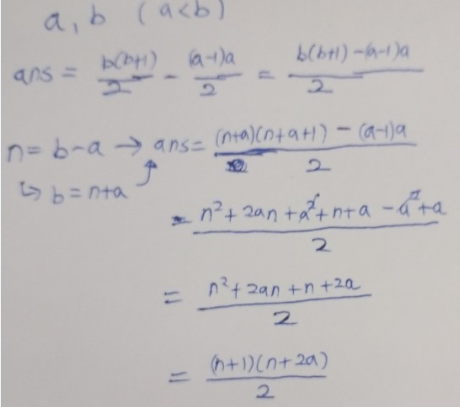 a, b (a<b)
ans = b(b+1)/2 - (a-1)a/2 = b(b+1)-(a-1)a/2
n = b-a → ans = (n+a)(n+a+1) - (a-1)a/2
↳ b = n+a
= n²+2an+a²+n+a -a²+a/2
= n²+2an+n+2a/2
= (n+1)(n+2a)/2